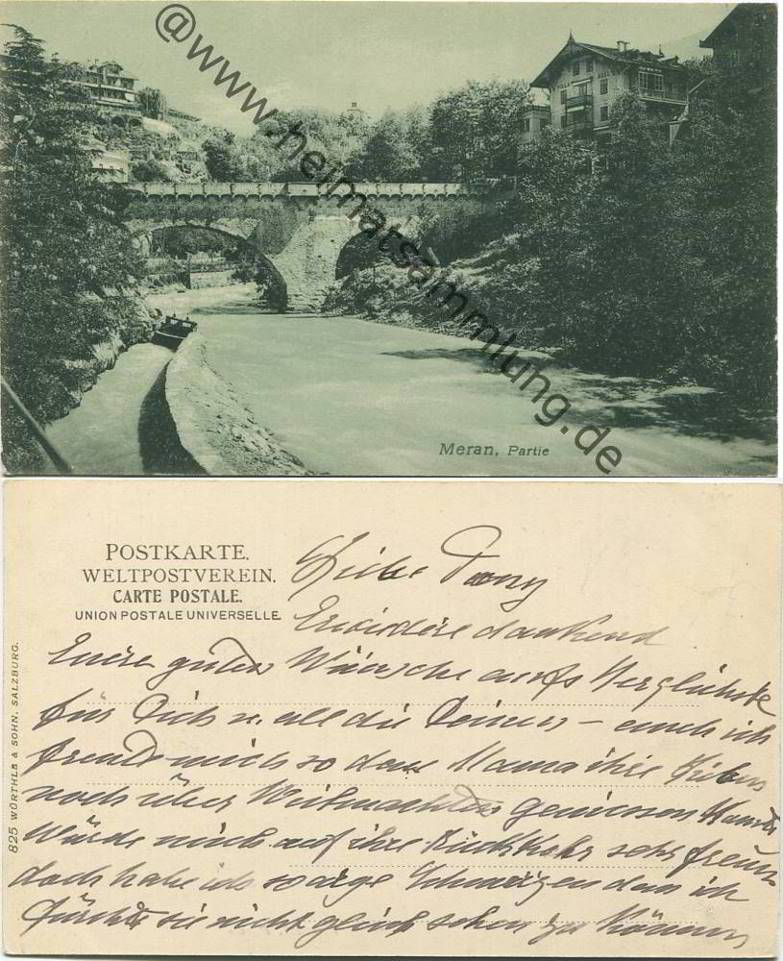 @www.heimatsammlung.de
Meran, Partie
POSTKARTE.
WELTPOSTVEREIN.
CARTE POSTALE.
UNION POSTALE UNIVERSELLE.
825 WÜRTHLE & SOHN, SALZBURG.
Liebe
Erwidere dankend
Eure guten Wünsche aufs Herzlichste
für Dich u. all die Deinen – auch ich
freude mich so dass Mama ihre Lieben
noch über Weihnachten geniessen
Würde mich auf ihre Rückkehr sehr freuen
doch habe ich so arge Schmerzen dass ich
fürchte sie nicht gleich sehen zu können